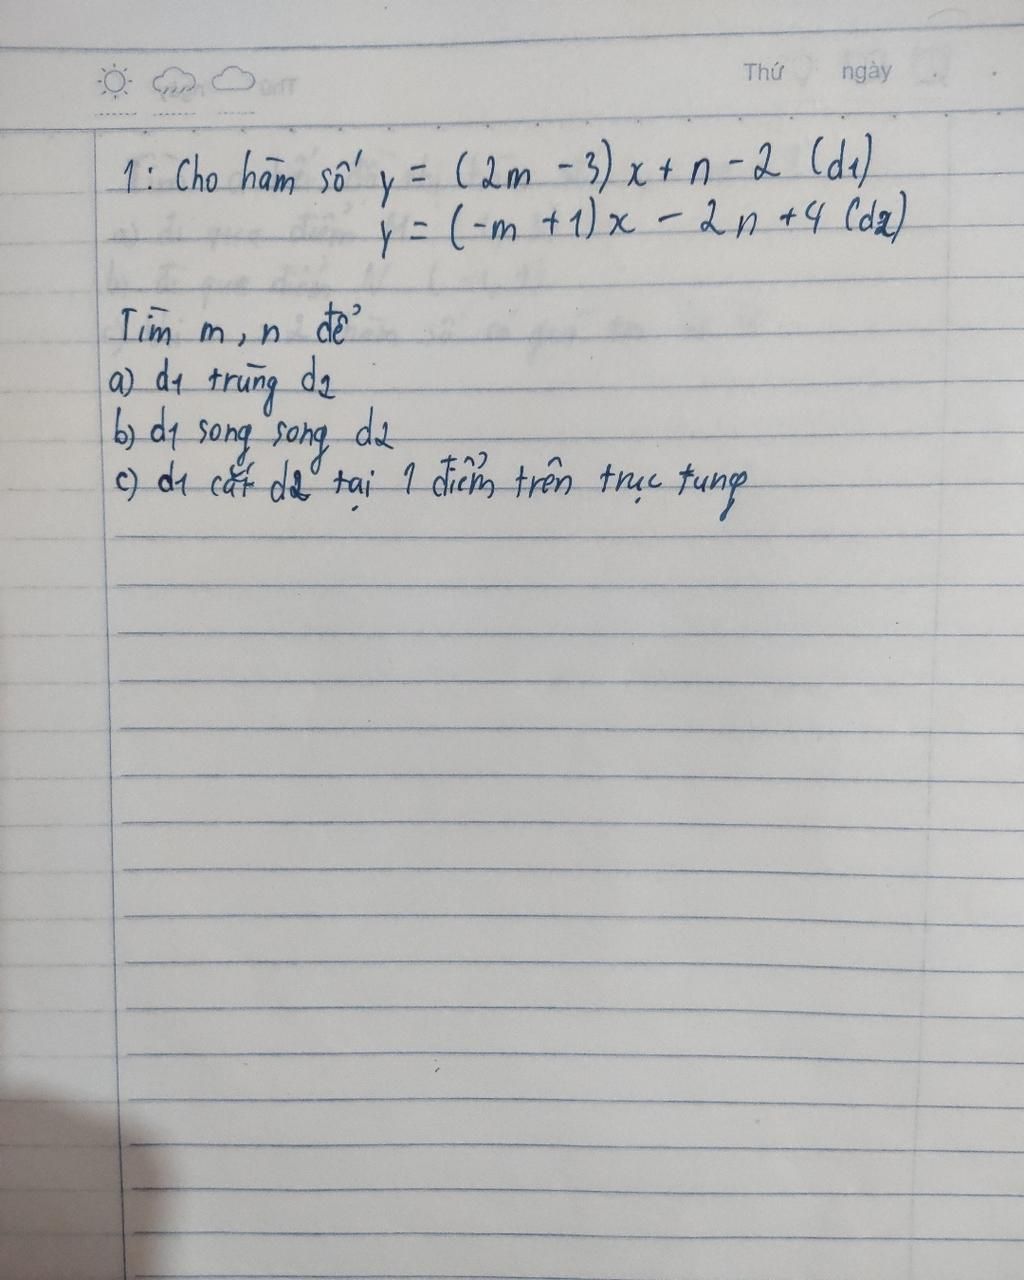 Thứ ngày
1: Cho hàm số y = (2m - 3) x + n - 2 (d1)
y = (-m + 1) x - 2n + 4 (d2)
Tìm m, n để
a) d1 trùng d2
b) d1 song song d2
c) d1 cắt d2 tại 1 điểm trên trục tung